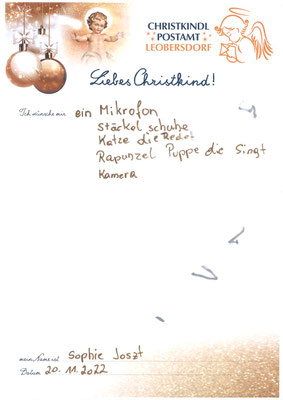 CHRISTKINDL
POSTAMT
LEOBERSDORF
Liebes Christkind!
Ich wünsche mir ein Mikrofon
Stäckel schuhe
Katze die Redet
Rapunzel Puppe die Singt
Kamera
mein Name ist Sophie Joszt
Datum 20.11.2022